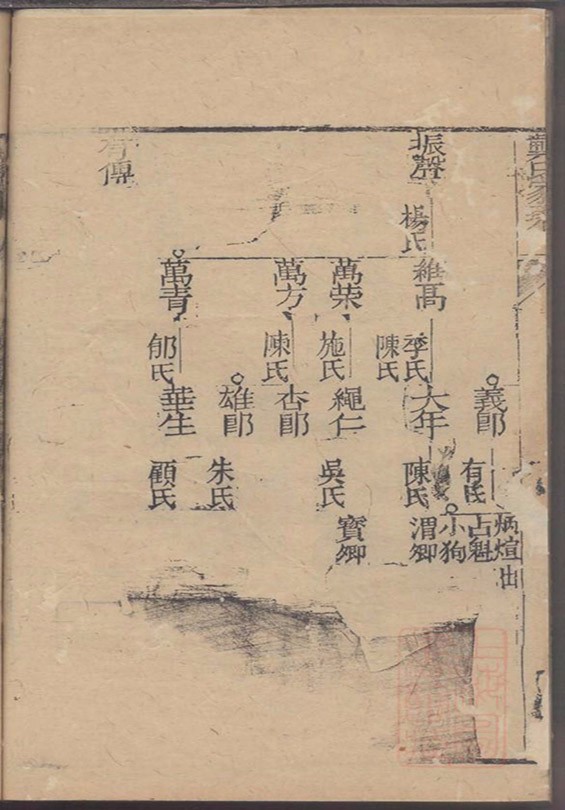 龔氏家
振聲
有傳
楊氏
維高
萬荣
萬方
萬青
季氏
陳氏
施氏
陳氏
郁氏
義郎
大年
繩仁
杏郎
雄郎
華生
有氏
陳氏
吳氏
朱氏
顧氏
炳煊出
占魁
小狗
渭卿
寳卿